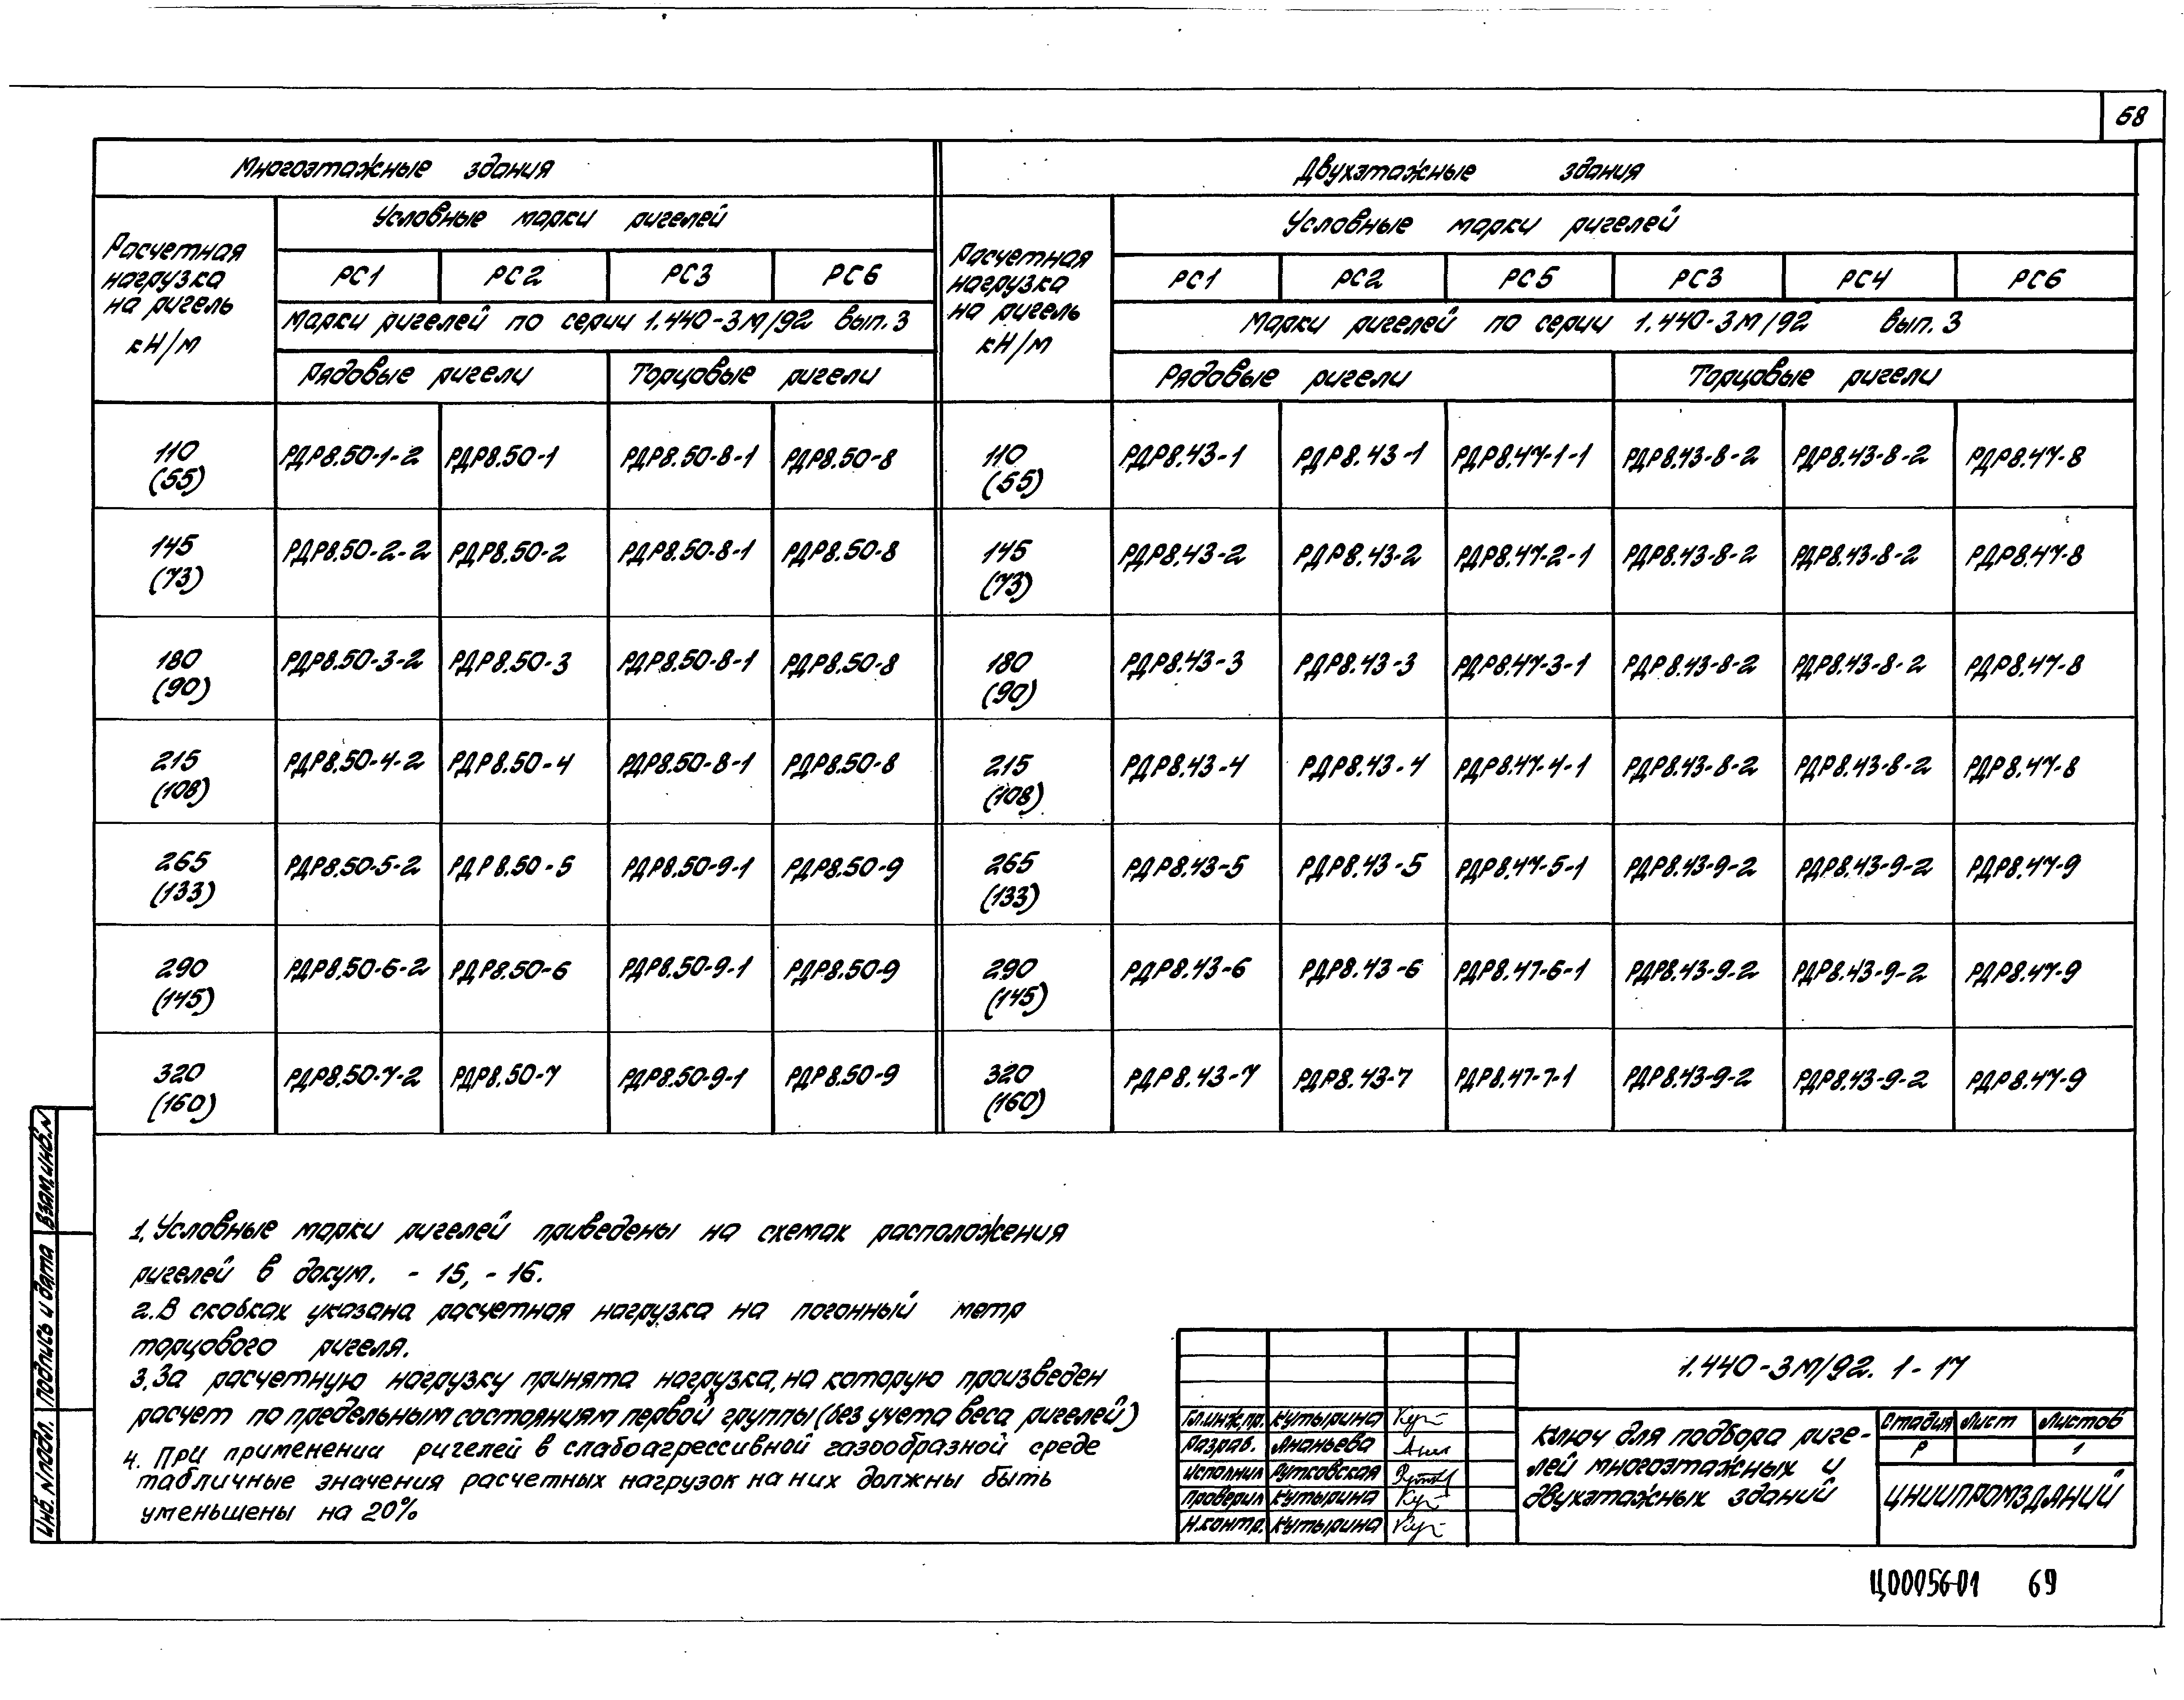 68
Многоэтажные здания
Двухэтажные здания
Расчетная нагрузка на ригель кН/м
Условные марки ригелей
РС1 РС2 РС3 РС6
Марки ригелей по серии 1.440-3М/92 вып.3
Рядовые ригели Торцовые ригели
Расчетная нагрузка на ригель кН/м
Условные марки ригелей
РС1 РС2 РС5 РС3 РС4 РС6
Марки ригелей по серии 1.440-3М/92 вып.3
Рядовые ригели Торцовые ригели
110 (55) РДР8.50-1-2 РДР8.50-1 РДР8.50-8-1 РДР8.50-8 110 (55) РДР8.43-1 РДР8.43-1 РДР8.47-1-1 РДР8.43-8-2 РДР8.43-8-2 РДР8.47-8
145 (73) РДР8.50-2-2 РДР8.50-2 РДР8.50-8-1 РДР8.50-8 145 (73) РДР8.43-2 РДР8.43-2 РДР8.47-2-1 РДР8.43-8-2 РДР8.43-8-2 РДР8.47-8
180 (90) РДР8.50-3-2 РДР8.50-3 РДР8.50-8-1 РДР8.50-8 180 (90) РДР8.43-3 РДР8.43-3 РДР8.47-3-1 РДР8.43-8-2 РДР8.43-8-2 РДР8.47-8
215 (108) РДР8.50-4-2 РДР8.50-4 РДР8.50-8-1 РДР8.50-8 215 (108) РДР8.43-4 РДР8.43-4 РДР8.47-4-1 РДР8.43-8-2 РДР8.43-8-2 РДР8.47-8
265 (133) РДР8.50-5-2 РДР8.50-5 РДР8.50-9-1 РДР8.50-9 265 (133) РДР8.43-5 РДР8.43-5 РДР8.47-5-1 РДР8.43-9-2 РДР8.43-9-2 РДР8.47-9
290 (145) РДР8.50-6-2 РДР8.50-6 РДР8.50-9-1 РДР8.50-9 290 (145) РДР8.43-6 РДР8.43-6 РДР8.47-6-1 РДР8.43-9-2 РДР8.43-9-2 РДР8.47-9
320 (160) РДР8.50-7-2 РДР8.50-7 РДР8.50-9-1 РДР8.50-9 320 (160) РДР8.43-7 РДР8.43-7 РДР8.47-7-1 РДР8.43-9-2 РДР8.43-9-2 РДР8.47-9
1. Условные марки ригелей приведены на схемах расположения
ригелей в докум. - 15, - 16.
2. В скобках указана расчетная нагрузка на погонный метр
торцового ригеля.
3. За расчетную нагрузку принята нагрузка, на которую произведен
расчет по предельным состояниям первой группы (без учета веса ригелей)
4. При применении ригелей в слабоагрессивной газообразной среде
табличные значения расчетных нагрузок на них должны быть
уменьшены на 20%
Инв. N подл. Подпись и дата Взам.инв.N
1.440-3М/92. 1-17
Гл.инж.пр. Кутырина
Разраб. Ананьева
Исполнил Рутковская
Проверил Кутырина
Н.контр. Кутырина
Ключ для подбора риге-
лей многоэтажных и
двухэтажных зданий
Стадия Лист Листов
Р 1
ЦНИИПРОМЗДАНИЙ
Ц00056-01 69